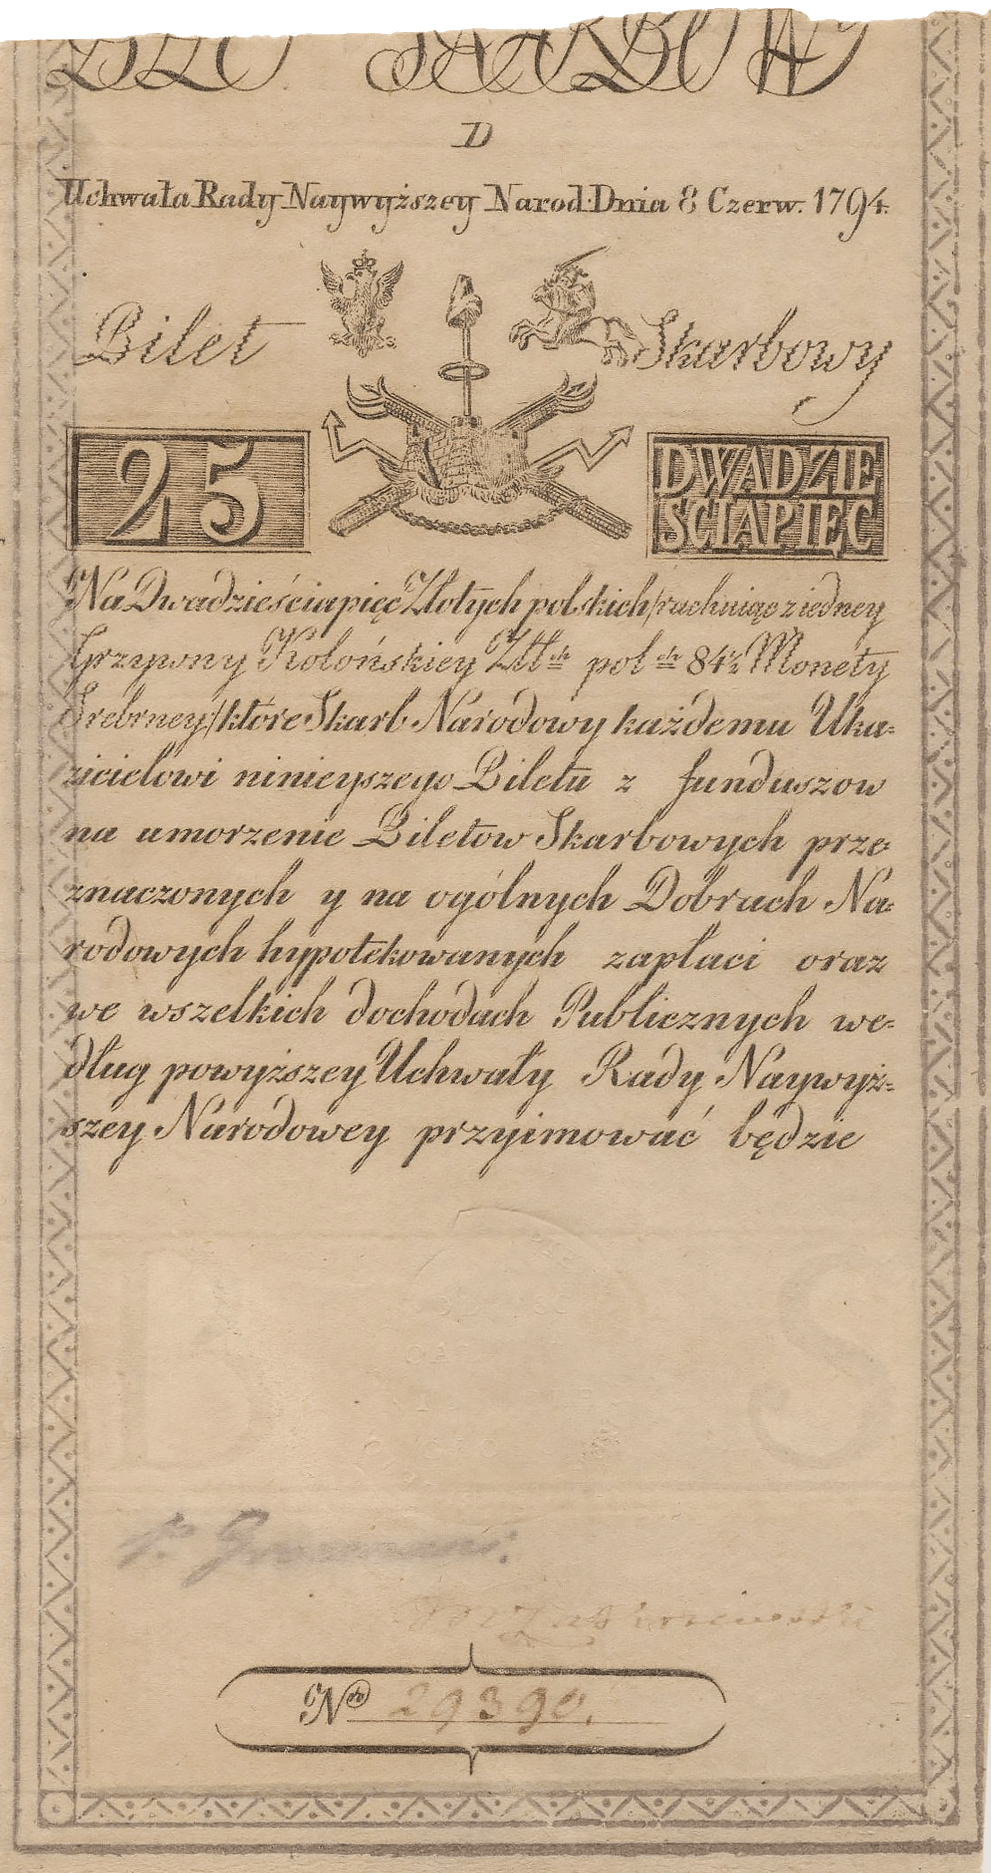 BILET SKARBOWY
D
Uchwała Rady Naywyższey Narod: Dnia 8 Czerw. 1794.
Bilet Skarbowy
25 DWADZIE
ŚCIAPIĘĆ
Na Dwadzieściapięć Złotych polskich /:rachuiąc z iedney
Grzywny Kolońskiey Złł:ch pol:ch 84½ Monety
Srebrney:/ które Skarb Narodowy każdemu Uka=
zicielowi ninieyszego Biletu z funduszow
na umorzenie Biletow Skarbowych prze=
znaczonych y na ogólnych Dobrach Na=
rodowych hypotekowanych zapłaci oraz
we wszelkich dochodach Publicznych we=
dług powyższey Uchwały Rady Naywyż=
szey Narodowey przyimować będzie
B S
No 29390.